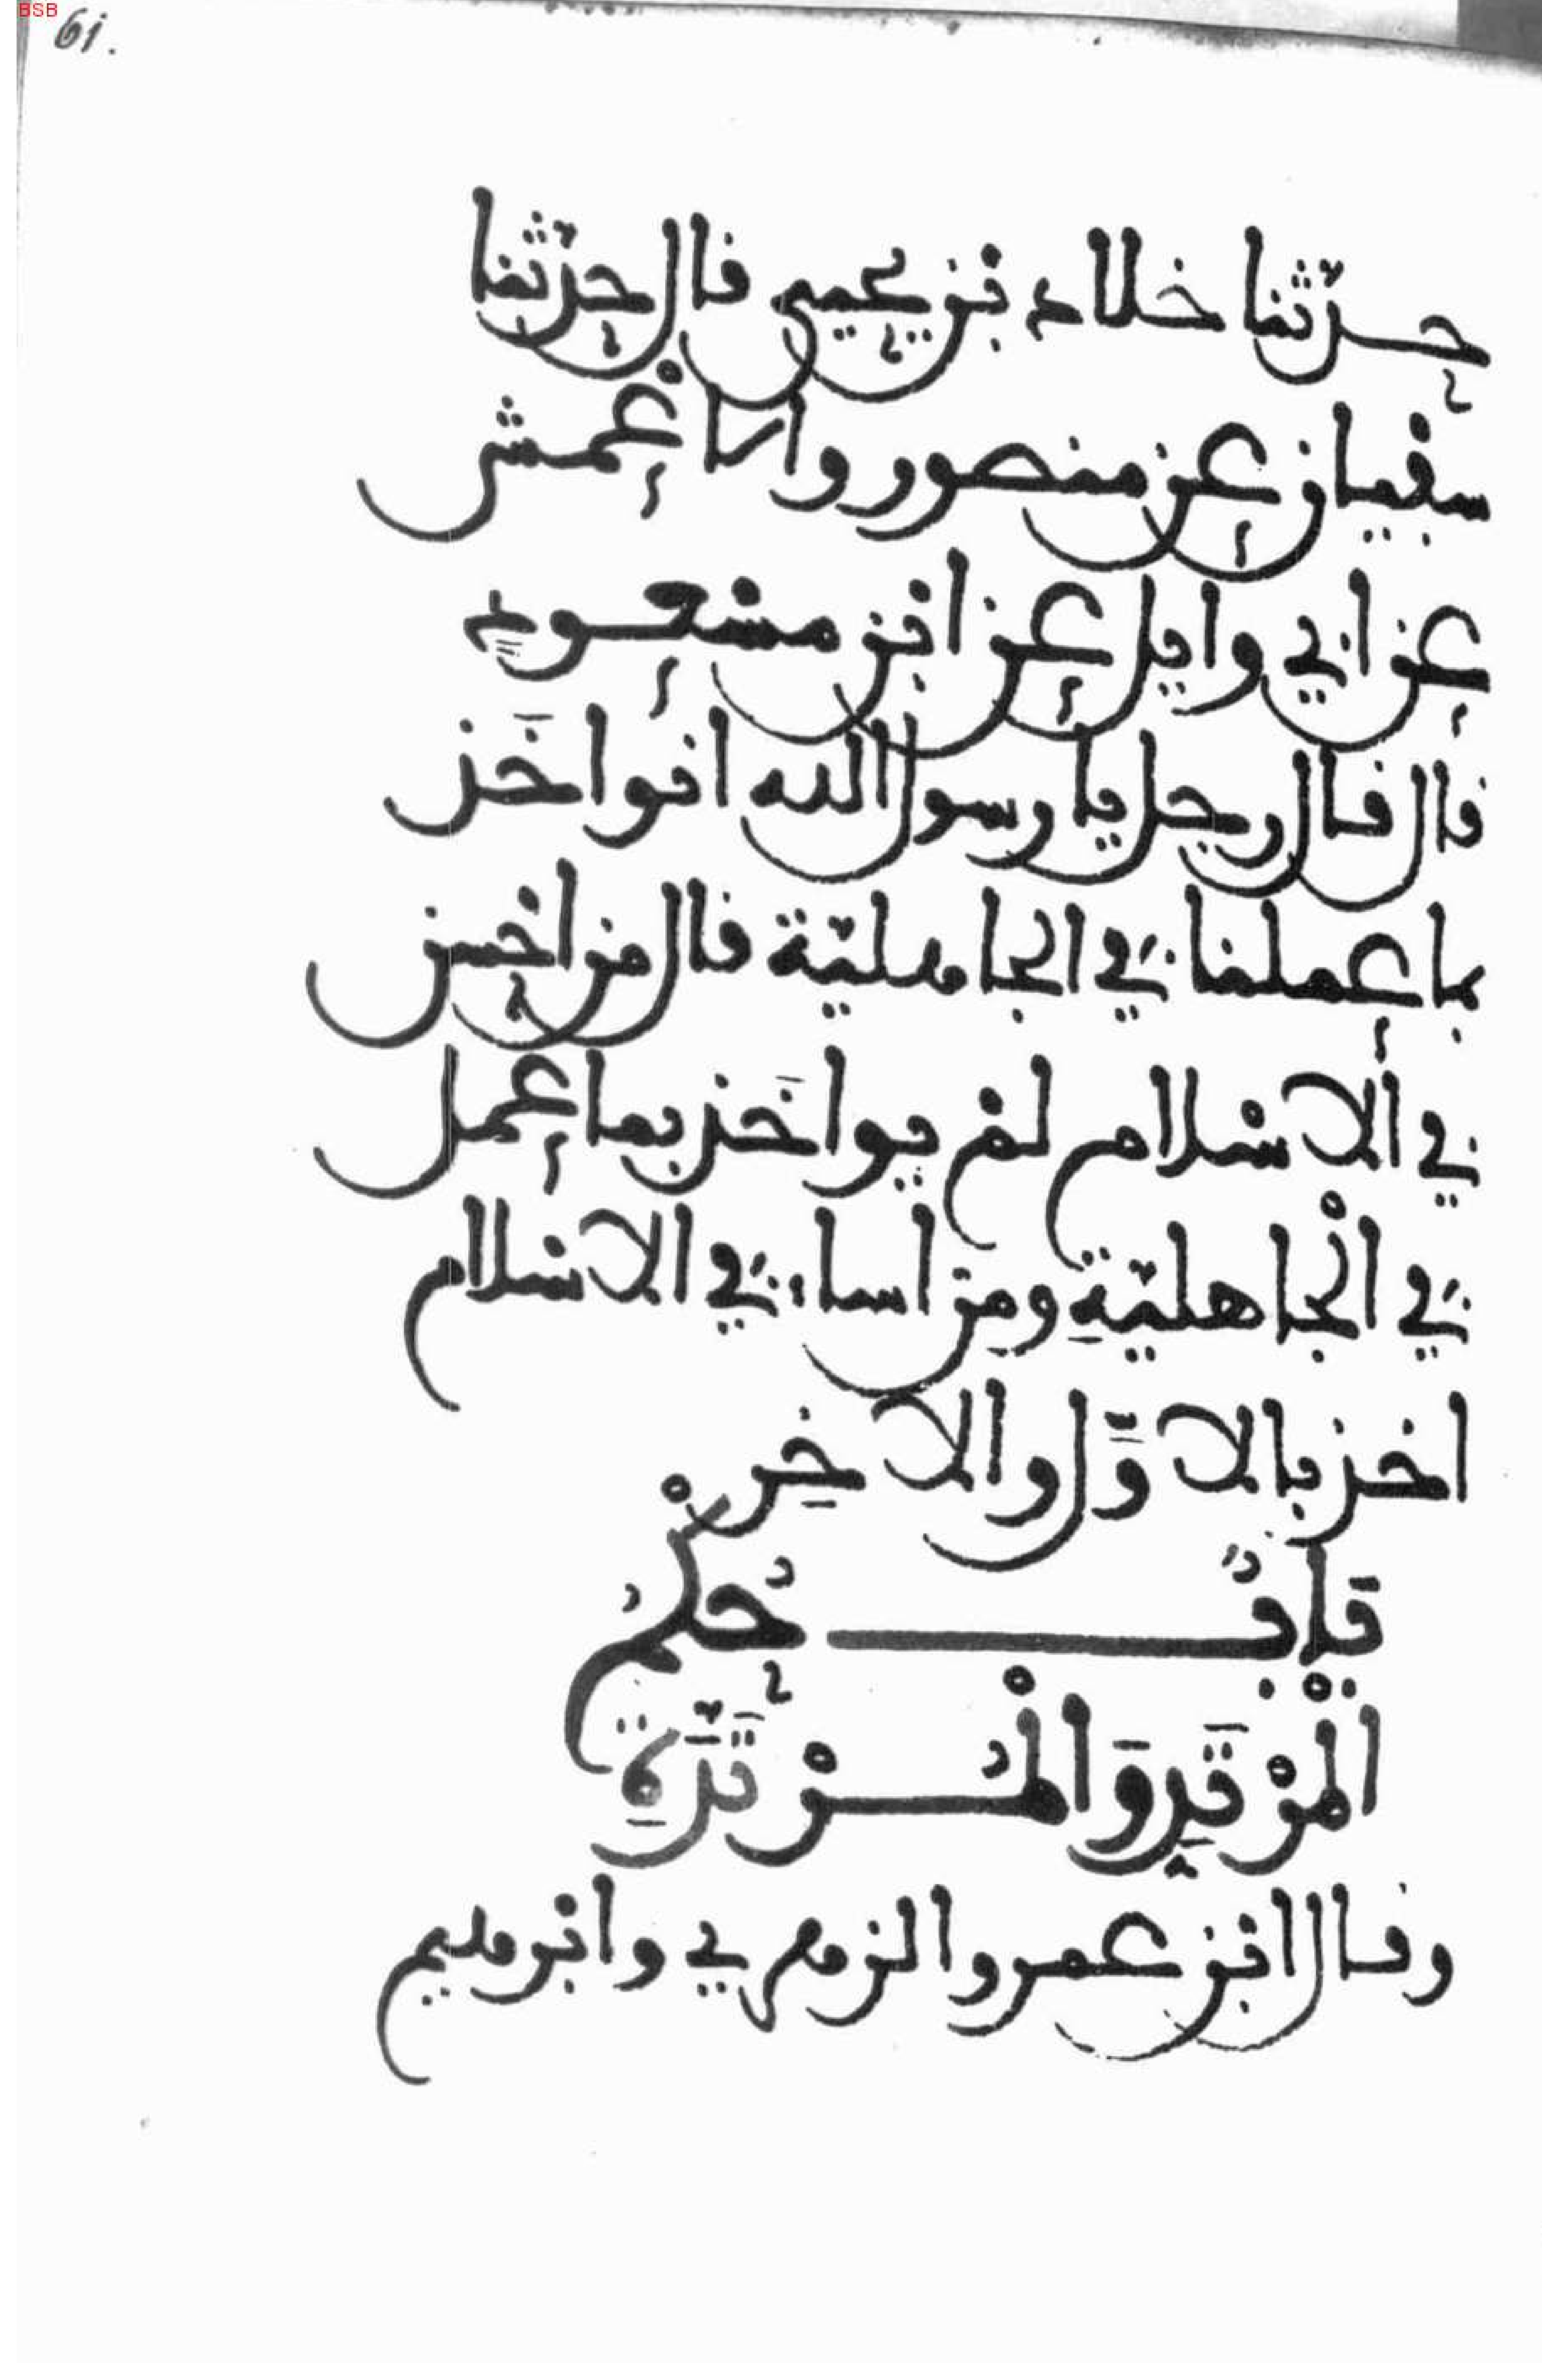 BSB
61.
حدّثنا خلاد بن يحيى قال حدّثنا
سفيان عن منصور والاعْمش
عن ابي وايل عن ابن مسْعود
قال قال رجل يا رسول الله انواخَذ
بما عملنا في الجاهليّة قال من احْسن
في الاسْلام لمْ يواخَذ بما عمل
في الْجاهليّةِ ومِن اساء في الاسْلام
اخذ بالاوَّل والاخِر
بَابُ حُكْمُ
الْمرْتَدِ وَالْمُرْتَدَّةِ
وقال ابن عمر والزهري وابرهيم